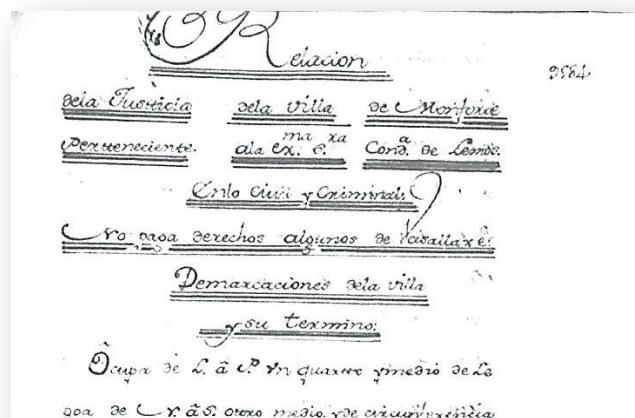 Relacion
2584
dela Justicia dela villa de Monforte
Perteneciente. ala Ex.ma S.ra Cond.a de Lemos.
Enlo Civil y Criminal.
No paga derechos algunos de vasallaxe:
Demarcaciones dela villa
y su termino:
Ocupa de L. â P. vn quarto ymedio de Le
goa de N. â S. otro medio yde circunferencia